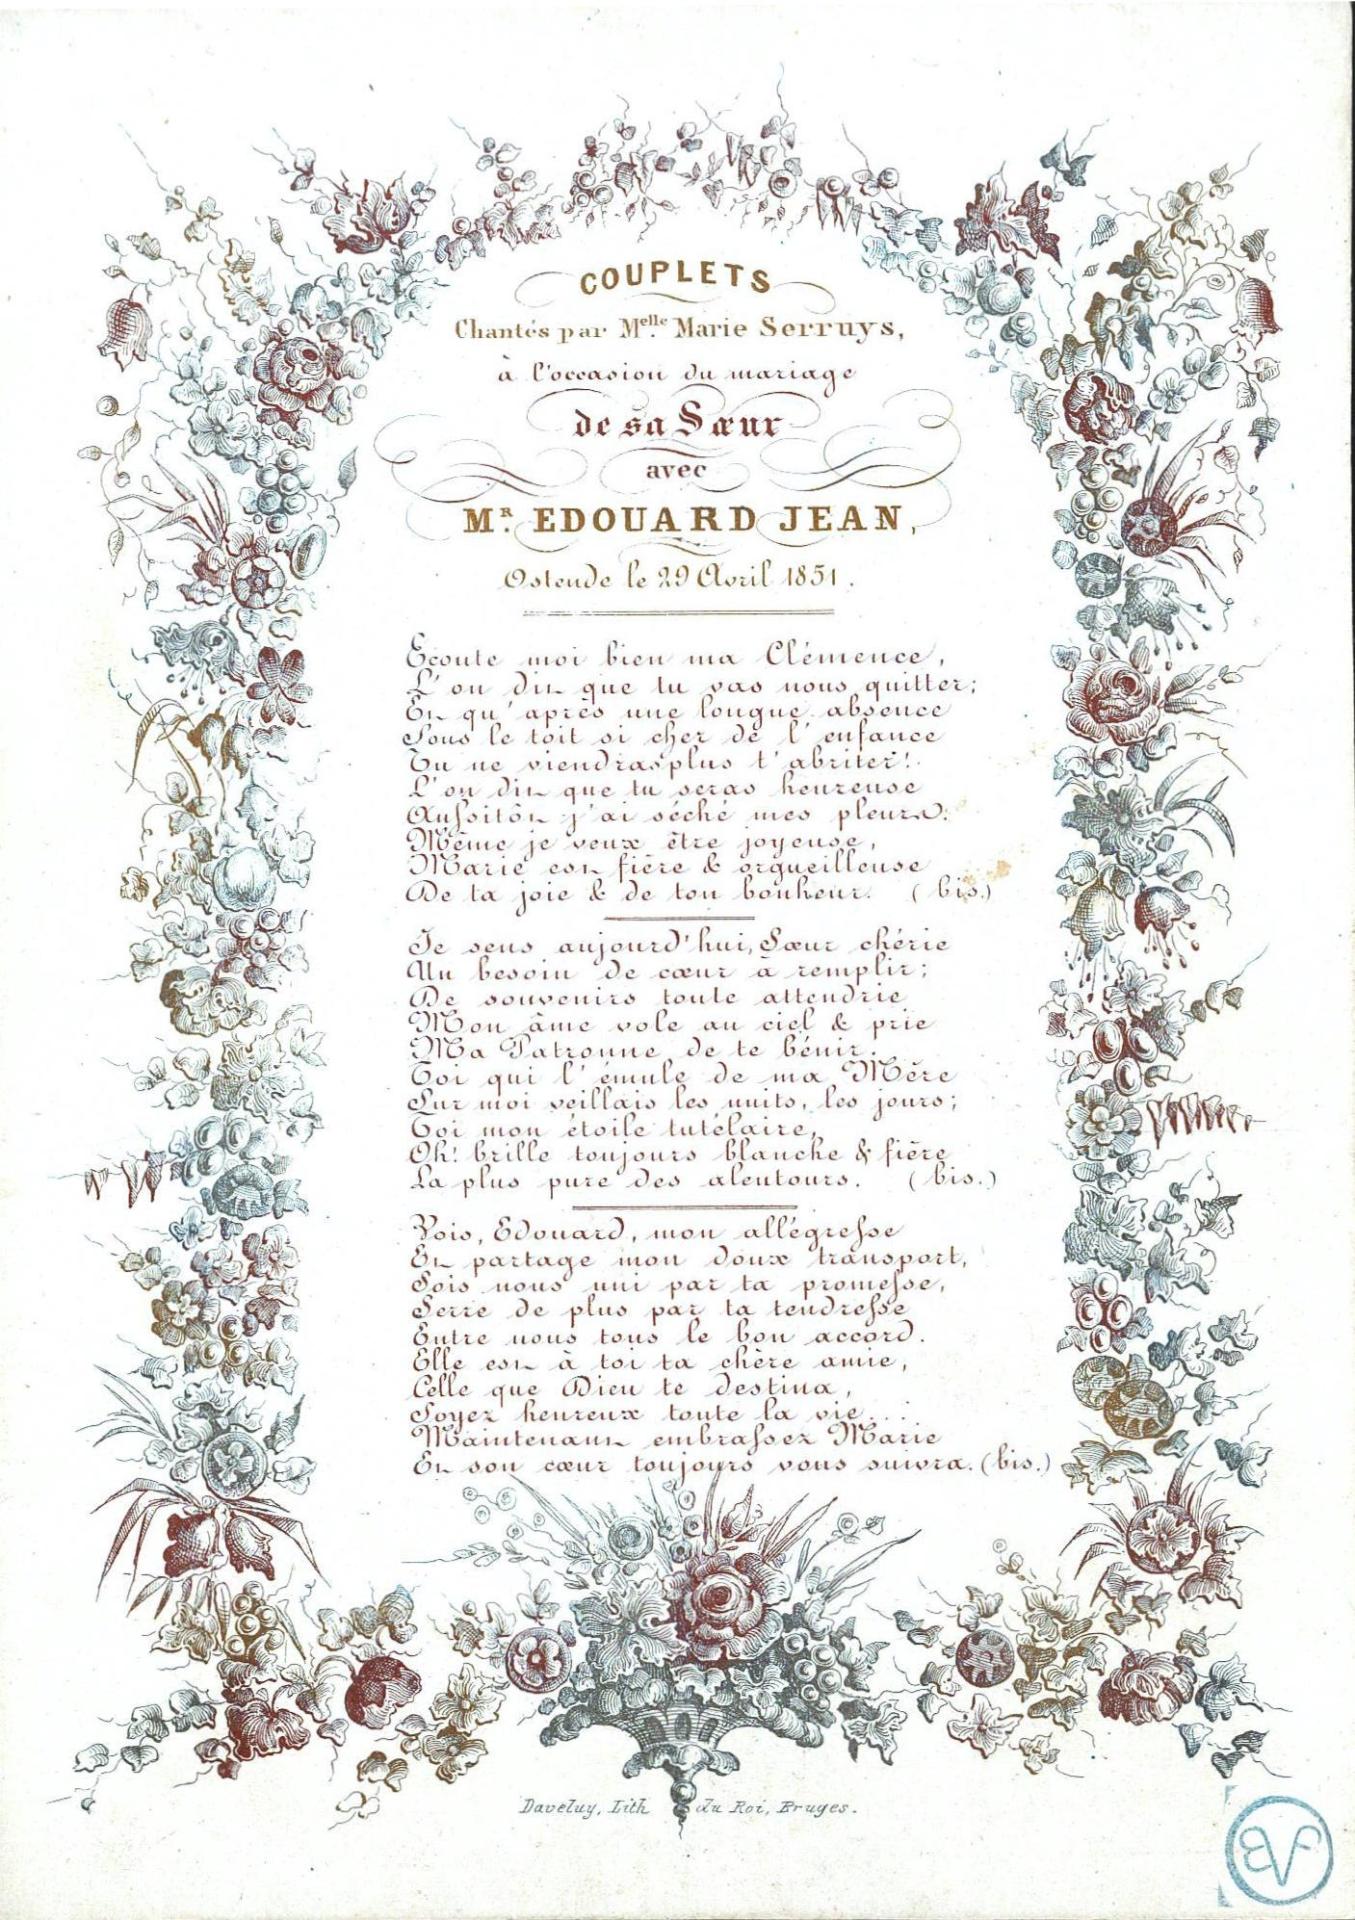 COUPLETS
Chantés par Melle Marie Serruys,
à l'occasion du mariage
de sa Sœur
avec
MR. EDOUARD JEAN,
Ostende le 29 Avril 1851.
Ecoute moi bien ma Clémence,
L'on dit que tu vas nous quitter;
Et qu'après une longue absence
Sous le toit si cher de l'enfance
Tu ne viendras plus t'abriter!
L'on dit que tu seras heureuse
Aussitôt j'ai séché mes pleurs:
Même je veux être joyeuse,
Marie est fière & orgueilleuse
De ta joie & de ton bonheur. (bis.)
Je sens aujourd'hui, Sœur chérie
Un besoin de cœur à remplir;
De souvenirs toute attendrie
Mon âme vole au ciel & prie
Ma Patronne de te bénir.
Toi qui l'émule de ma Mère
Sur moi veillais les nuits, les jours;
Toi mon étoile tutélaire,
Oh! brille toujours blanche & fière
La plus pure des alentours. (bis.)
Vois, Edouard, mon allégresse
Et partage mon doux transport,
Sois nous uni par ta promesse,
Serre de plus par ta tendresse
Entre nous tous le bon accord.
Elle est à toi ta chère amie,
Celle que Dieu te destina,
Soyez heureux toute la vie...
Maintenant embrassez Marie
Et son cœur toujours vous suivra. (bis.)
Daveluy, Lith du Roi, Bruges.